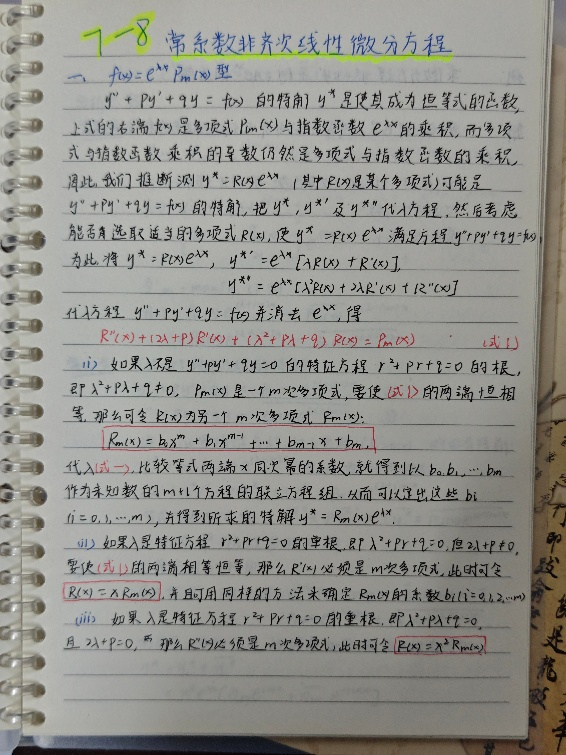 7-8 常系数非齐次线性微分方程
一、f(x)=e^{λx}Pm(x)型
y''+Py'+qy=f(x) 的特解 y*是使其成为恒等式的函数,
上式的右端f(x)是多项式Pm(x)与指数函数e^{λx}的乘积,而多项
式与指数函数乘积的导数仍然是多项式与指数函数的乘积,
因此我们推断测y*=R(x)e^{λx} (其中R(x)是某个多项式)可能是
y''+Py'+qy=f(x)的特解,把y*,y*'及y*''代入方程,然后考虑
能否选取适当的多项式R(x),使y*=R(x)e^{λx}满足方程y''+Py'+qy=f(x),
为此,将y*=R(x)e^{λx}, y*'=e^{λx}[λR(x)+R'(x)],
y*''=e^{λx}[λ²R(x)+2λR'(x)+R''(x)]
代入方程 y''+Py'+qy=f(x)并消去 e^{λx},得
R''(x)+(2λ+P)R'(x)+(λ²+Pλ+q)R(x)=Pm(x) (式1)
(i) 如果λ不是 y''+py'+qy=0的特征方程 r²+pr+q=0的根,
即λ²+Pλ+q≠0, Pm(x)是一个m次多项式,要使(式1)的两端恒相
等,那么可令R(x)为另一个m次多项式Rm(x):
Rm(x)=b₀x^m+b₁x^{m-1}+…+b_{m-1}x+b_m,
代入(式一),比较等式两端x同次幂的系数,就得到以b₀,b₁,…,bm
作为未知数的m+1个方程的联立方程组.从而可以定出这些bi
(i=0,1,…,m),并得到所求的特解y*=Rm(x)e^{λx}.
(ii) 如果λ是特征方程 r²+Pr+q=0的重根,即λ²+Pr+q=0,但2λ+p≠0,
要使(式1)的两端相等恒等,那么R'(x)必须是m次多项式,此时可令
R(x)=xRm(x),并且可用同样的方法来确定Rm(x)的系数bi(i=0,1,2,…m)
(iii) 如果λ是特征方程r²+Pr+q=0的重根,即λ²+pλ+q=0,
且2λ+p=0, 那么R''(x)必须是m次多项式,此时可令 R(x)=x²Rm(x)